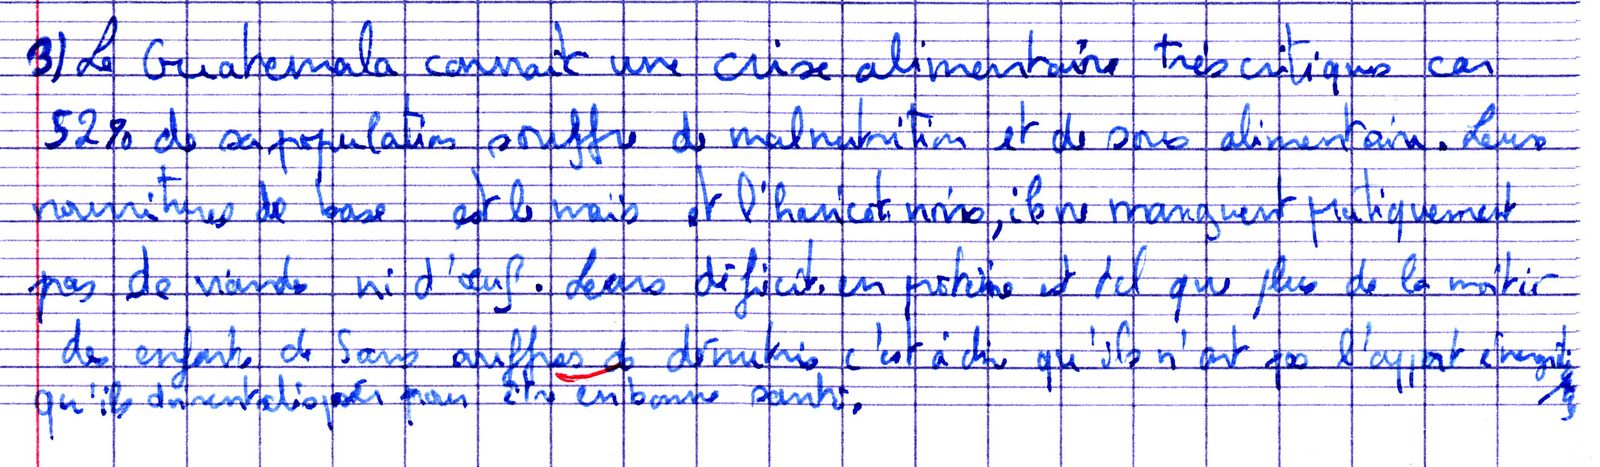 3) Le Guatemala connait une crise alimentaire très critique car
52% de sa population souffre de malnutrition et de sous alimentaire. Leurs
nourritures de base est le maïs et l'haricot noirs, ils ne manguent pratiquement
pas de viande ni d'œuf. Leurs déficit en protéine est tel que plus de la moitié
des enfants de 5ans souffres de dénutris c'est à dire qu'ils n'ont pas l'apport énergétique
qu'ils doivent disposés pour être en bonne santé.